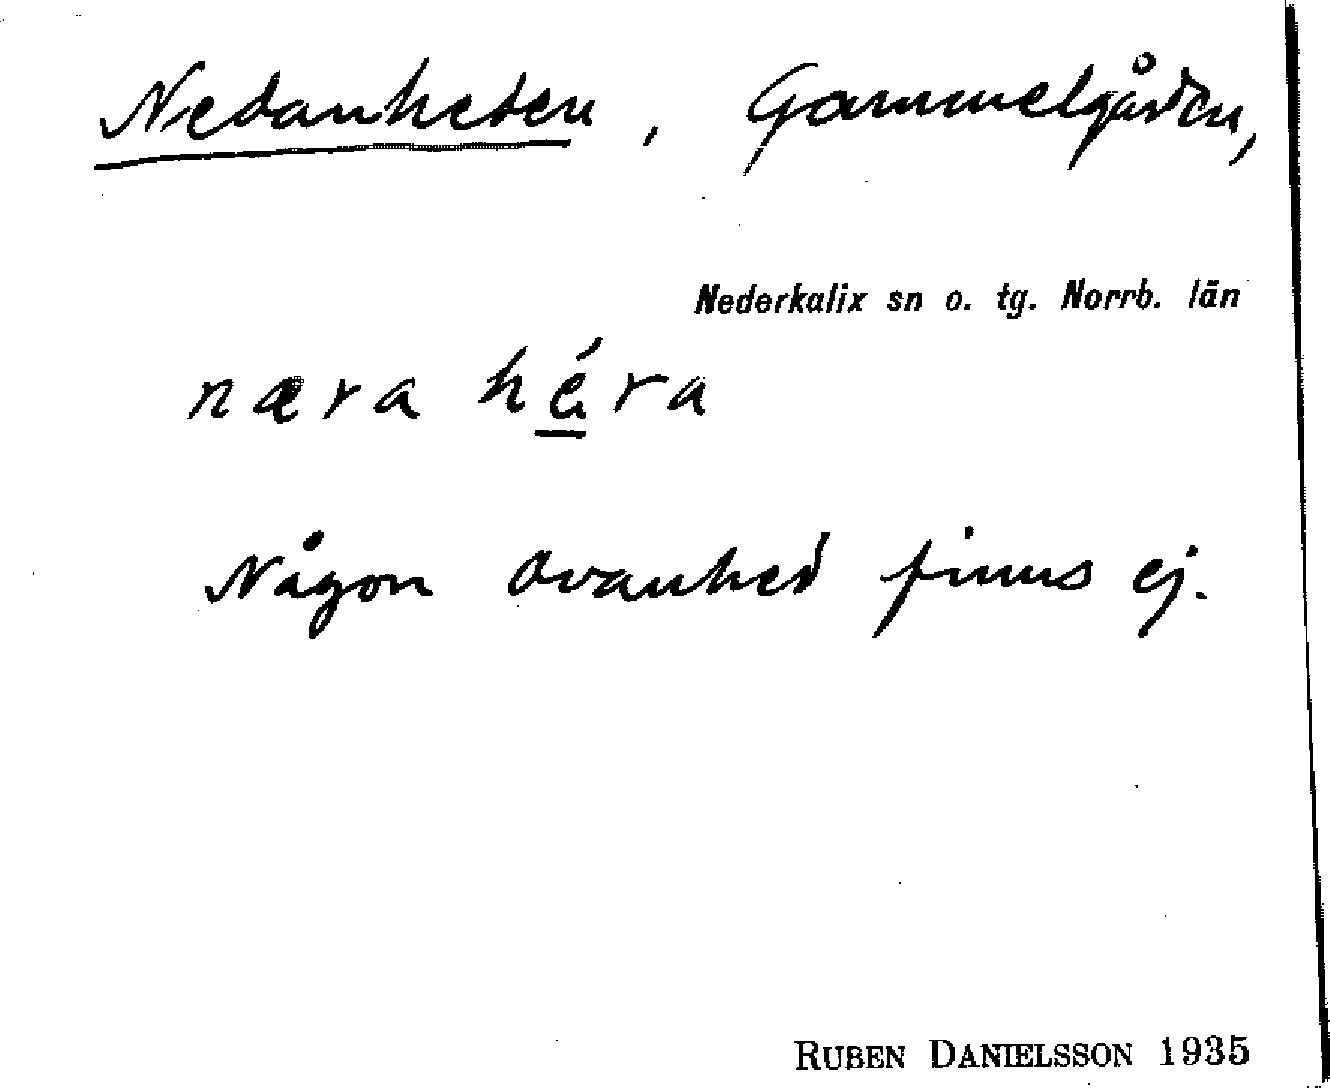 Nedanheden, Gammelgården,
Nederkalix sn o. tg. Norrb. län
næra héra
Någon Ovanhed finns ej.
RUBEN DANIELSSON 1935